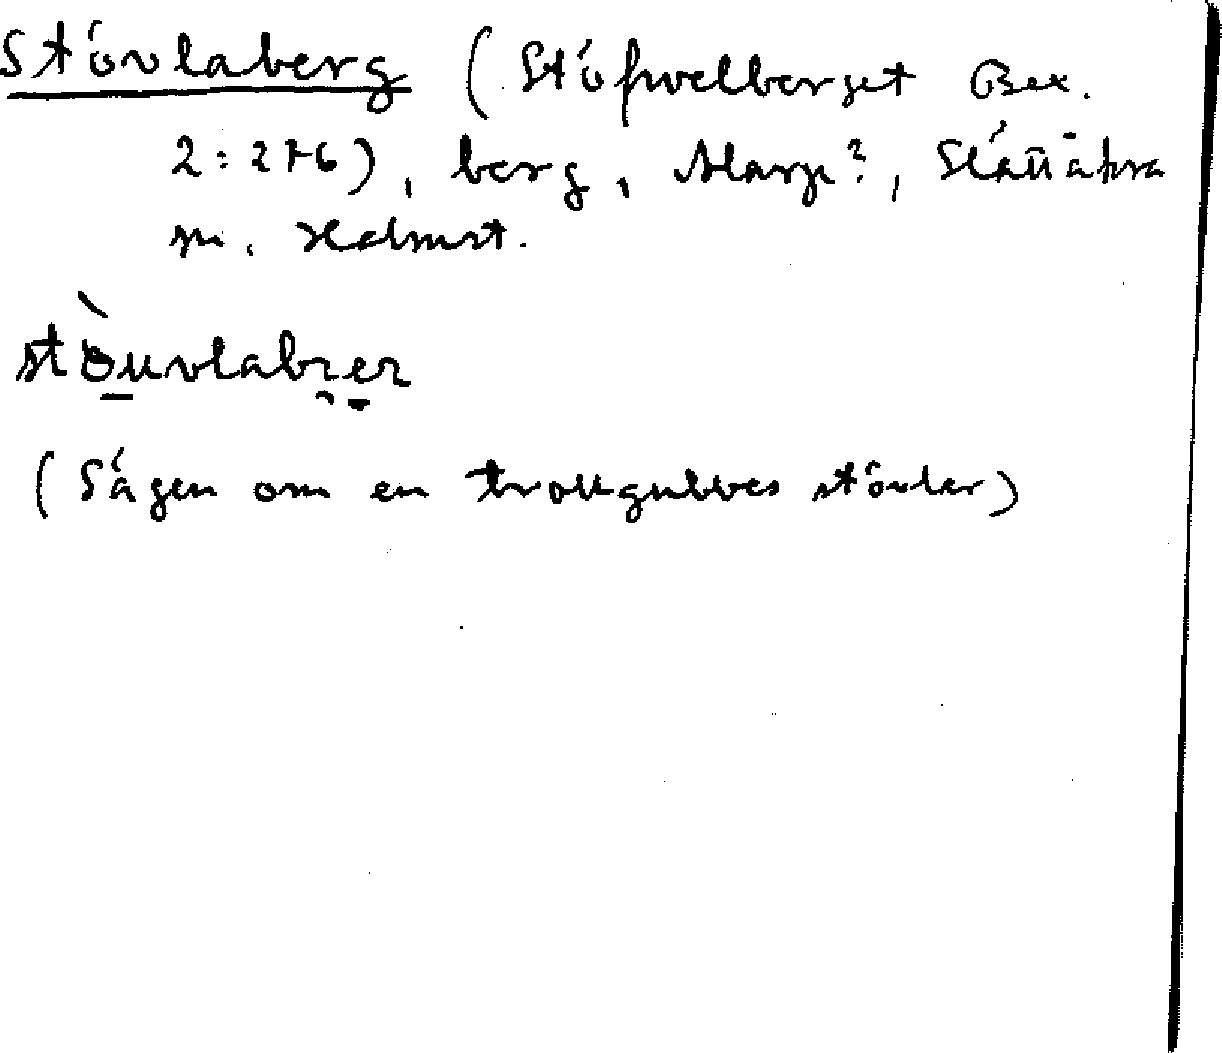 Stövlaberg (Stöfwelberget Bex.
2:276), berg, Alarp?, Slättåkra
sn, Halmst.
stòuvlabrer
(Sägen om en trollgubbes stövlar)